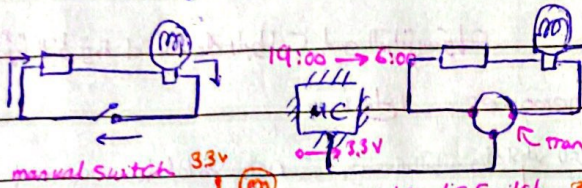 19:00 → 6:00
MC
3.3V
manual switch 3.3V
m